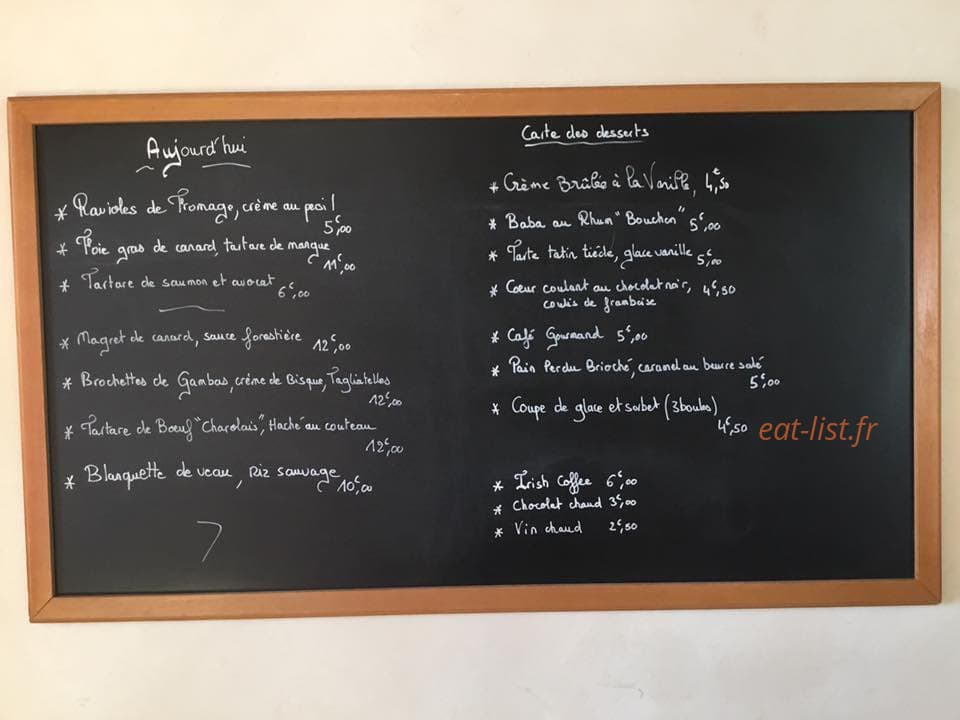 Aujourd'hui
* Ravioles de Fromage, crème au pesi!
5€,00
* Foie gras de canard, tartare de mangue
11€,00
* Tartare de saumon et avocat 6€,00
* Magret de canard, sauce forestière 12€,00
* Brochettes de Gambas, crème de Bisque, Tagliatelles
12€,00
* Tartare de Boeuf "Charolais", Haché au couteau
12€,00
* Blanquette de veau, riz sauvage 10€,00
Carte des desserts
* Crème Brûlée à la Vanille, 4€,50
* Baba au Rhum "Bouchon" 5€,00
* Tarte tatin tiède, glace vanille 5€,00
* Coeur coulant au chocolat noir, 4€,50
coulis de framboise
* Café Gourmand 5€,00
* Pain Perdu Brioché, caramel au beurre salé
5€,00
* Coupe de glace et sorbet (3 boules)
4€,50
* Irish Coffee 6€,00
* Chocolat chaud 3€,00
* Vin chaud 2€,50
eat-list.fr